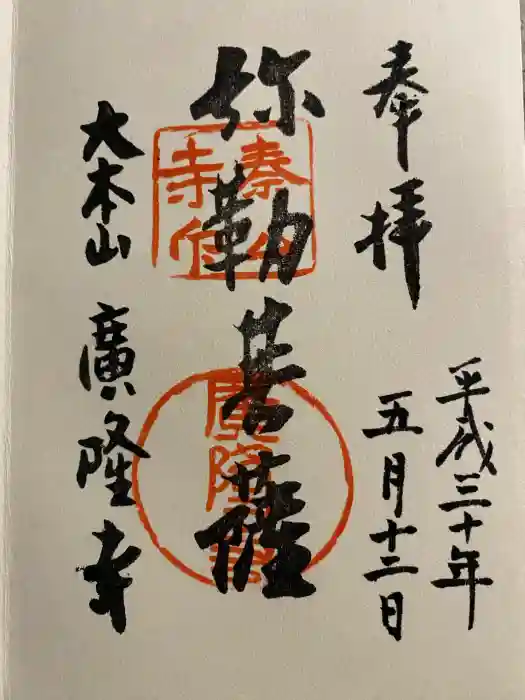 奉拝
平成三十年
五月十二日
弥勒菩薩
大本山 廣隆寺
廣隆寺